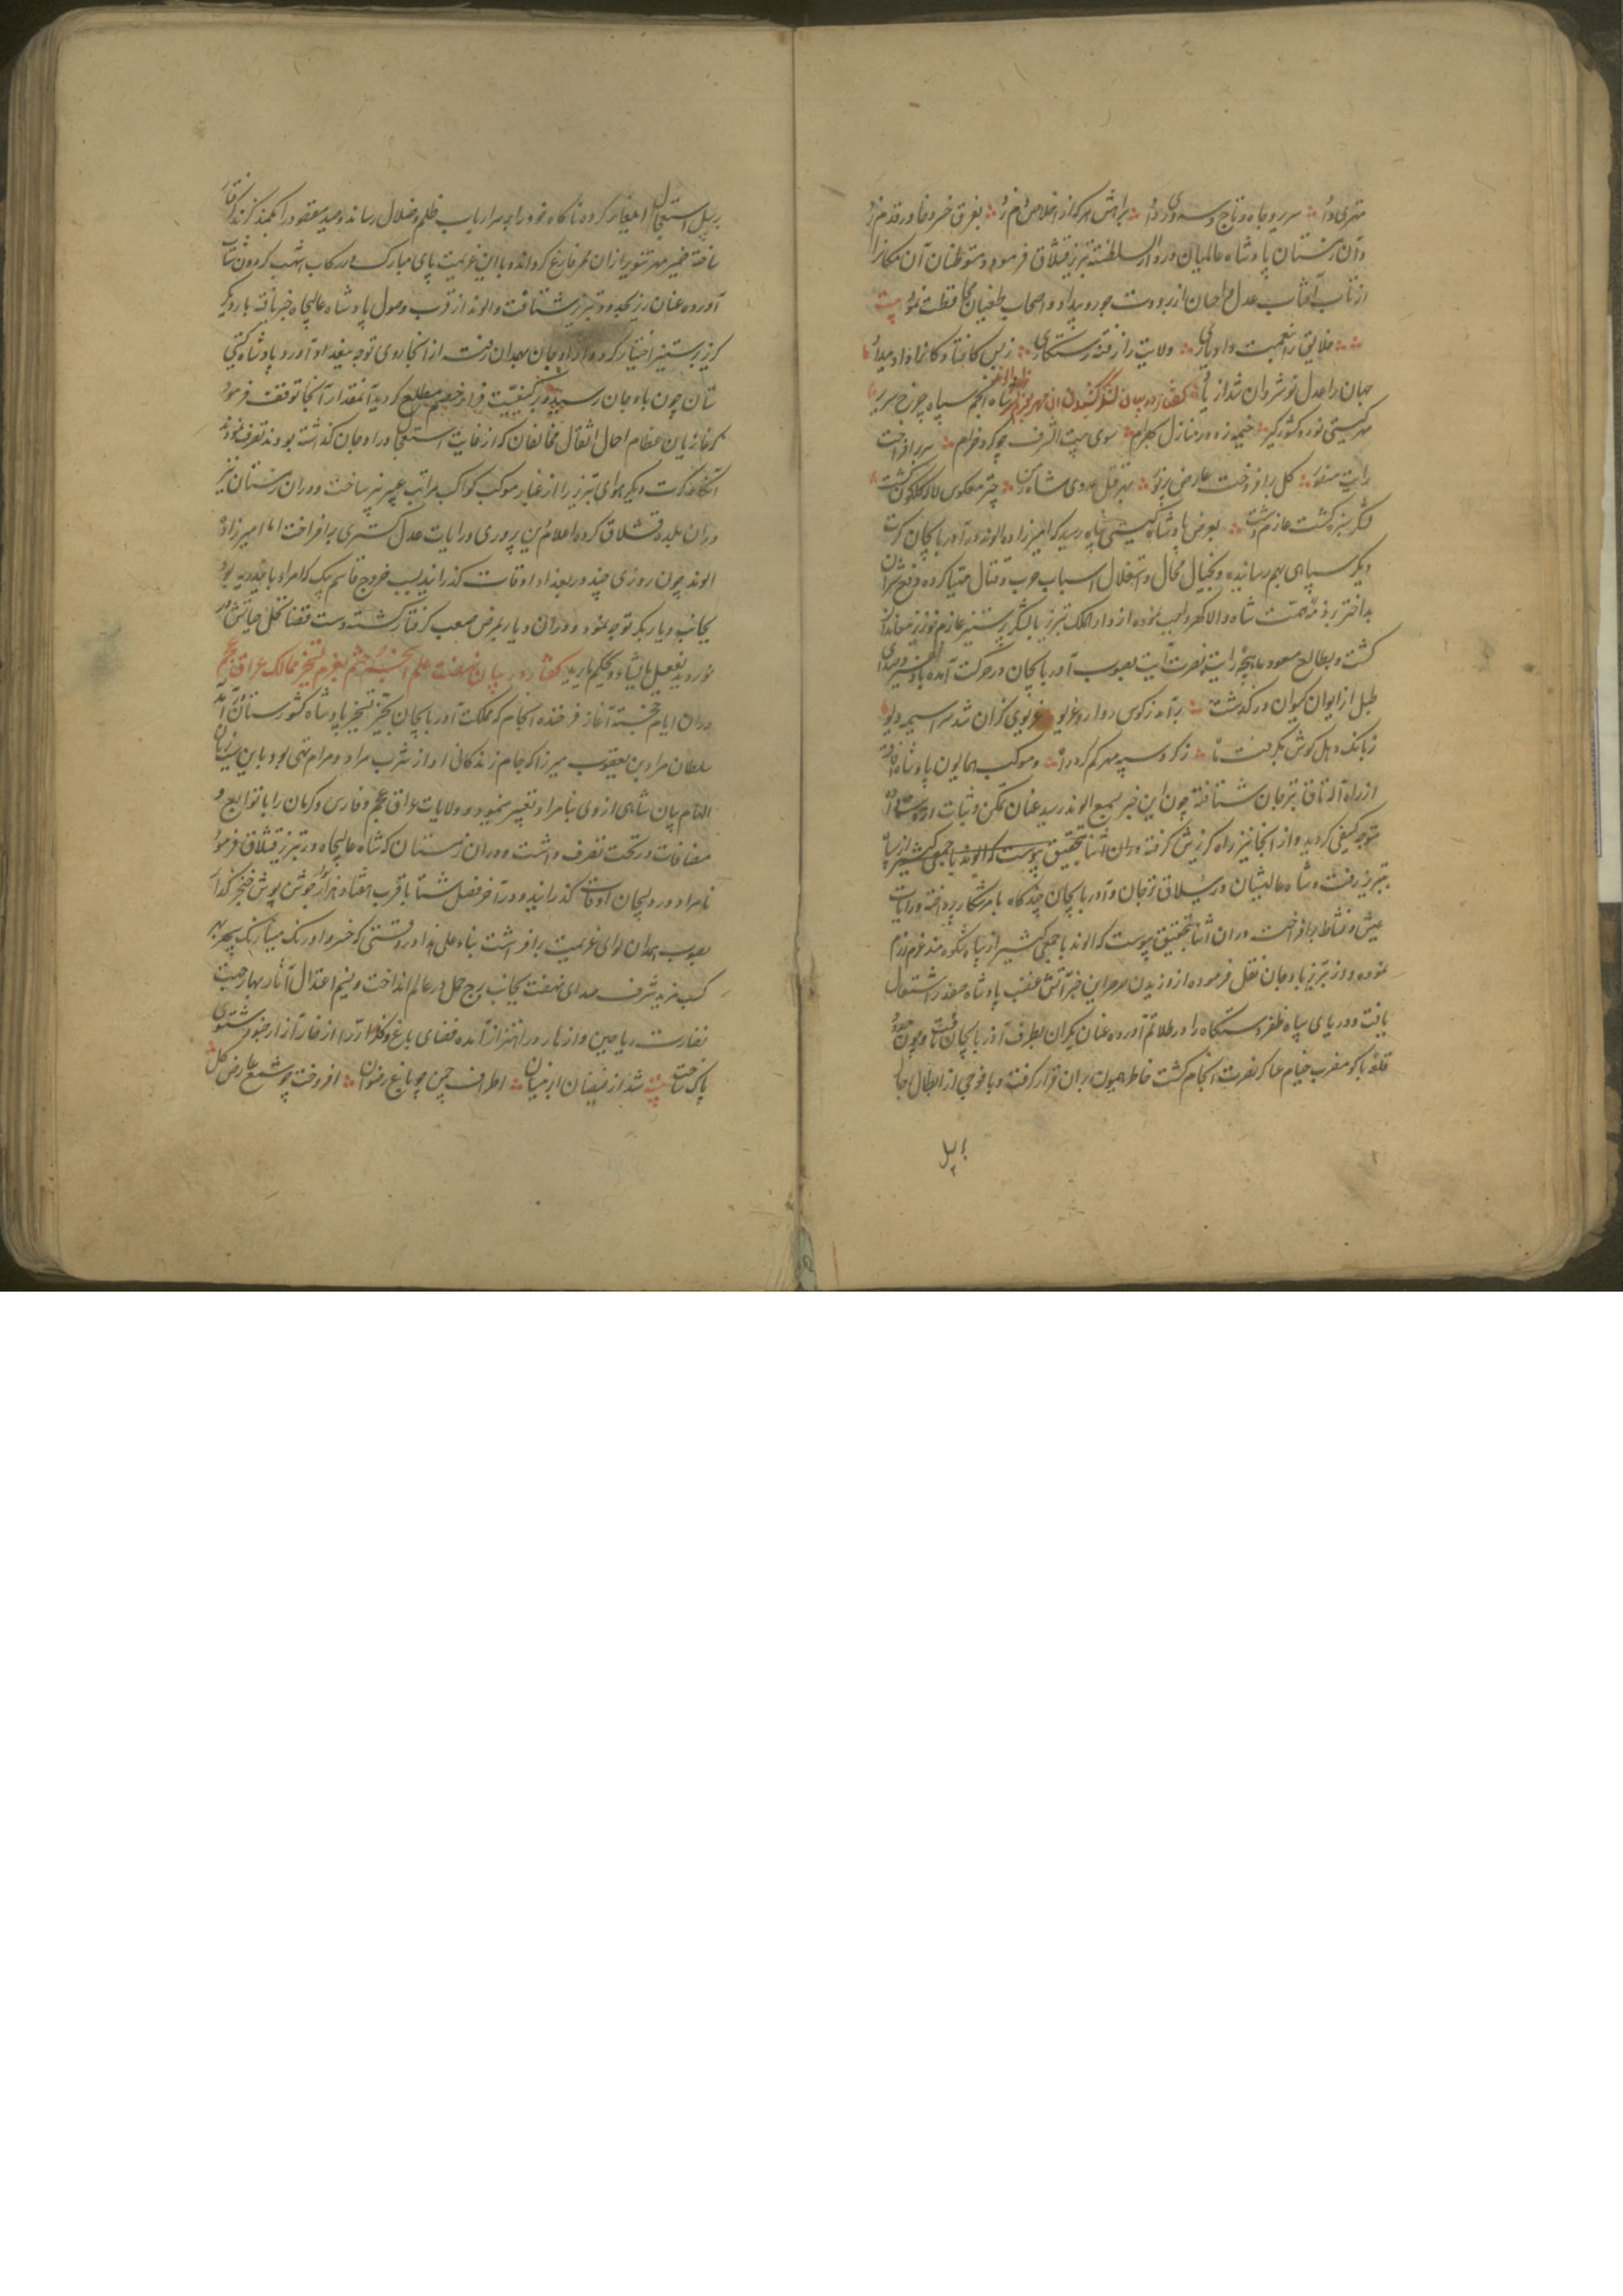 مهتری داد سریر و جاه و تاج و سروری داد براهش هر که از اخلاص دم زد بفرق خسرو خاور قدم زد
و آن زمستان پادشاه عالمیان در دار السلطنة تبریز قشلاق فرموده متوطنان آن مکانرا
از تاب آفتاب عدل و احسان از برودت جور و بیداد و اصحاب طغیان محافظت نمود بیت
خلایق را نعمت داد یاری ولایت را ز فتنه رستگاری ز بس کافتادکانرا داد میداد
جهان را عدل نوشروان شد از یاد گفتار در بیان لشکر کشیدن آن مهر شاه انجم سپاه چرخ سریر
مهر گیتی نورد کشورگیر خیمه زد در منازل بهرام سوی بیت الشرف چو کرد خرام سر برافراخت
رایت منصور گل برافروخت عارض پرنور بهر قتل عدوی شاه زمن چتر معکوس لاله گلگون گشت
لشکر سبزه گشت عازم دشت بعرض پادشاه گیتی پناه رسید که امیرزاده الوند در آذربایجان کرت
دیگر سپاهی بهم رسانیده و بخیال محال و استقلال اسباب حرب و قتال مهیا کرده دفع شر آن
بداختر بر ذمه همت شاه والاگهر واجب نموده از دار الملک تبریز با لشکر رستخیز عازم
گشت و بطالع مسعود ماهچه رایت نصرت آیت بصوب آذربایجان در حرکت آمده
طبل از ایوان کیوان درگذشت برآمد ز کوس روارو غریو غریوی کزان شد سراسیمه دیو
ز بانک دهل گوش بگرفت ماه ز گرد سپه مهر گم کرد راه و موکب همایون پادشاه
از راه آله تاق بترجان شتافته چون این خبر بسمع الوند رسید عنان تمکن و ثبات از دست داده
متوجه کیفی گردید و از آنجا نیز راه گریزش گرفته در آن اثنا بتحقیق پیوست که الوند با جمعی کثیر از سپاه
بتبریز رفت و شاه عالیشان در ییلاق ترجان و آذربایجان چندگاه بامر شکار پرداخته و رایات
عیش و نشاط برافراخت در آن اثنا بتحقیق پیوست که الوند با جمعی کثیر از سپاه شکوه مند عزم رزم
نموده و از تبریز باوجان نقل فرموده از وزیدن صرصر این خبر آتش غضب پادشاه صفدر اشتعال
یافت و دریای سپاه ظفر دستگاه را در تلاطم آورده عنان یکران بطرف آذربایجان تافت و چون حدود
قلعه باکو مضرب خیام عساکر نصرت انجام گشت خاطر همیون بر آن قرار گرفت و با فوجی از ابطال رجال
برسبیل استعجال ایلغار کرده ناگاه خود را بر سر ارباب ظلم و ضلال رساند و صید مقصود را بکمند گزند گرفتار
ساخته ضمیر مهر تنویر از آن ممر فارغ گرداند و باین عزیمت پای مبارک در رکاب اشهب گردون شتاب
آورده عنان ریز بحدود تبریز شتافت و الوند از قرب وصول پادشاه عالیجاه خبر یافته بار دیگر
گریز بر ستیز اختیار کرد و از اوجان بهمدان رفت از آنجا روی توجه ببغداد آورد و پادشاه گیتی
ستان چون باوجان رسید و بر کیفیت فرار خصم مطلع گردید آنمقدار آنجا توقف فرمود
که غازیان عظام احمال اثقال مخالفان که از غایت استعجال در اوجان گذاشته بودند تصرف نمودند
آنگاه کرت دیگر هوای تبریز را از غبار موکب کواکب مراتب عبیر بیز ساخت و در آن زمستان نیز
در آن بلده قشلاق کرده اعلام دین پروری و رایات عدل گستری برافراخت اما امیرزاده
الوند چون روزی چند در بغداد اوقات گذرانید بسبب خروج قاسم بیک که امرا و با جدد یه بود
بجانب دیار بکر توجه نمود و در آن دیار بمرض صعب گرفتار گشته دست قضا نخل حیاتش در
نوردید یفعل الله ما یشاء و یحکم ما یرید گفتار در بیان نهضت علم انجم حشم بعزم تسخیر ممالک عراق عجم
در آن ایام خجسته آغاز فرخنده انجام که مملکت آذربایجان بحیز تسخیر پادشاه کشورستان درآمد
سلطان مراد بن یعقوب میرزا که جام زندگانی او از شرب مراد و مرام تهی بود و باین
الهام بیان شاهی از وی بنامراد تعبیر نمیود و ولایات عراق عجم و فارس و کرمان را با توابع و
مضافات در تحت تصرف داشت و در آن زمستان که شاه عالیجاه در تبریز قشلاق فرمود
نامراد در دلیجان اوقات گذرانید و در آخر فصل شتا با قرب هفتاد هزار جوشن پوش خنجر گذار
بصوب همدان لوای عزیمت برافراشت بناء علی هذا در وقتی که خسرو اورنگ مینا رنگ سپهر بهر
کسب مزید شرف صدای نهضت بجانب برج حمل در عالم انداخت و نسیم اعتدال آثار بهار جهت
نضارت ریاحین و ازهار در اهتزاز آمده فضای باغ و گلزار را از خار آزار خود شستشوی
پاک ساخت بیت شد از فیضان ابر نیسان اطراف چمن چو باغ رضوان افروخت چو شمع عارض گل